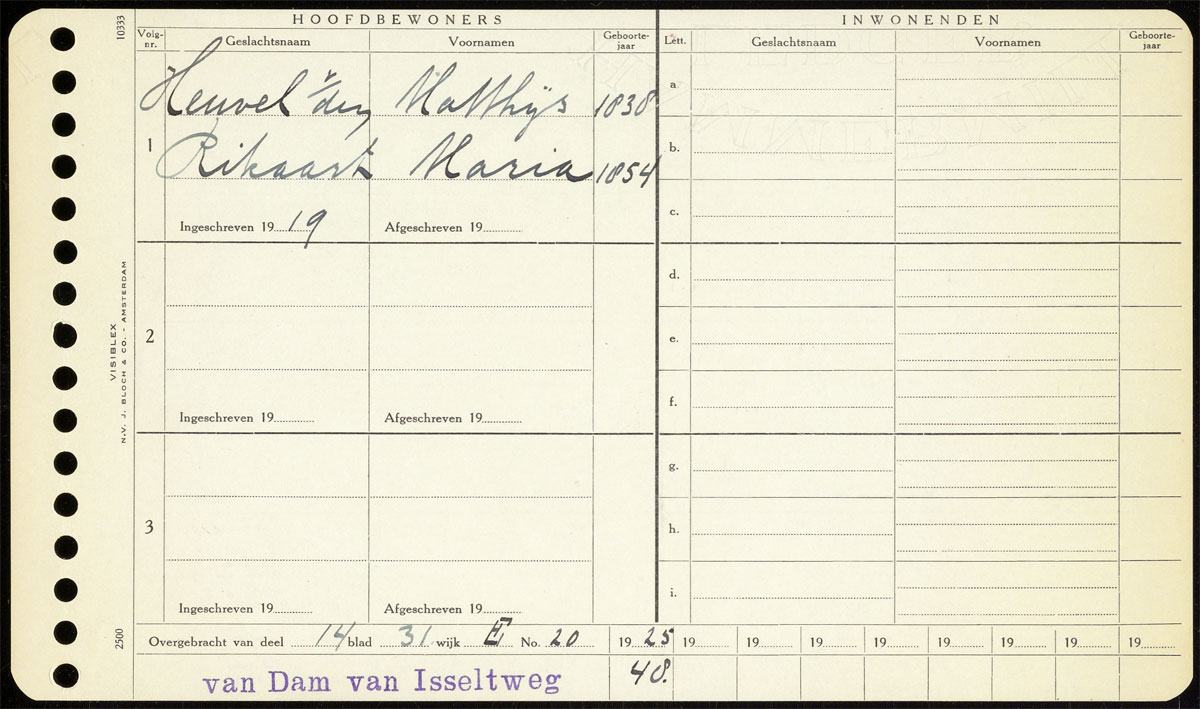 HOOFDBEWONERS INWONENDEN
Volg-nr. Geslachtsnaam Voornamen Geboorte-jaar Lett. Geslachtsnaam Voornamen Geboorte-jaar
Heuvel v/den Matthijs 1838 a.
1 Rikaart Maria 1854 b.
Ingeschreven 19 19 Afgeschreven 19 c.
d.
2 e.
Ingeschreven 19 Afgeschreven 19 f.
g.
3 h.
Ingeschreven 19 Afgeschreven 19 i.
Overgebracht van deel 14 blad 31 wijk E No. 20 19 25 19 19 19 19 19 19 19 19
van Dam van Isseltweg 40.
10333
VISIBLEX
N.V. J. BLOCH & CO. - AMSTERDAM
2500